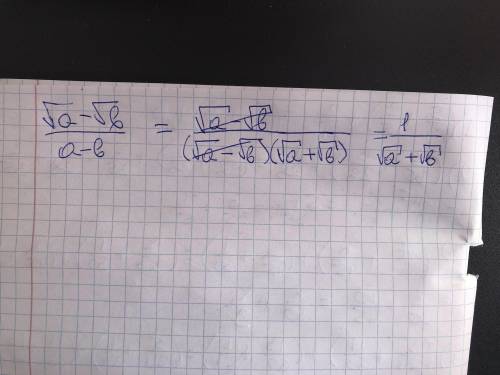 (√a-√b)/(a-b) = (√a-√b)/((√a-√b)(√a+√b)) = 1/(√a+√b)